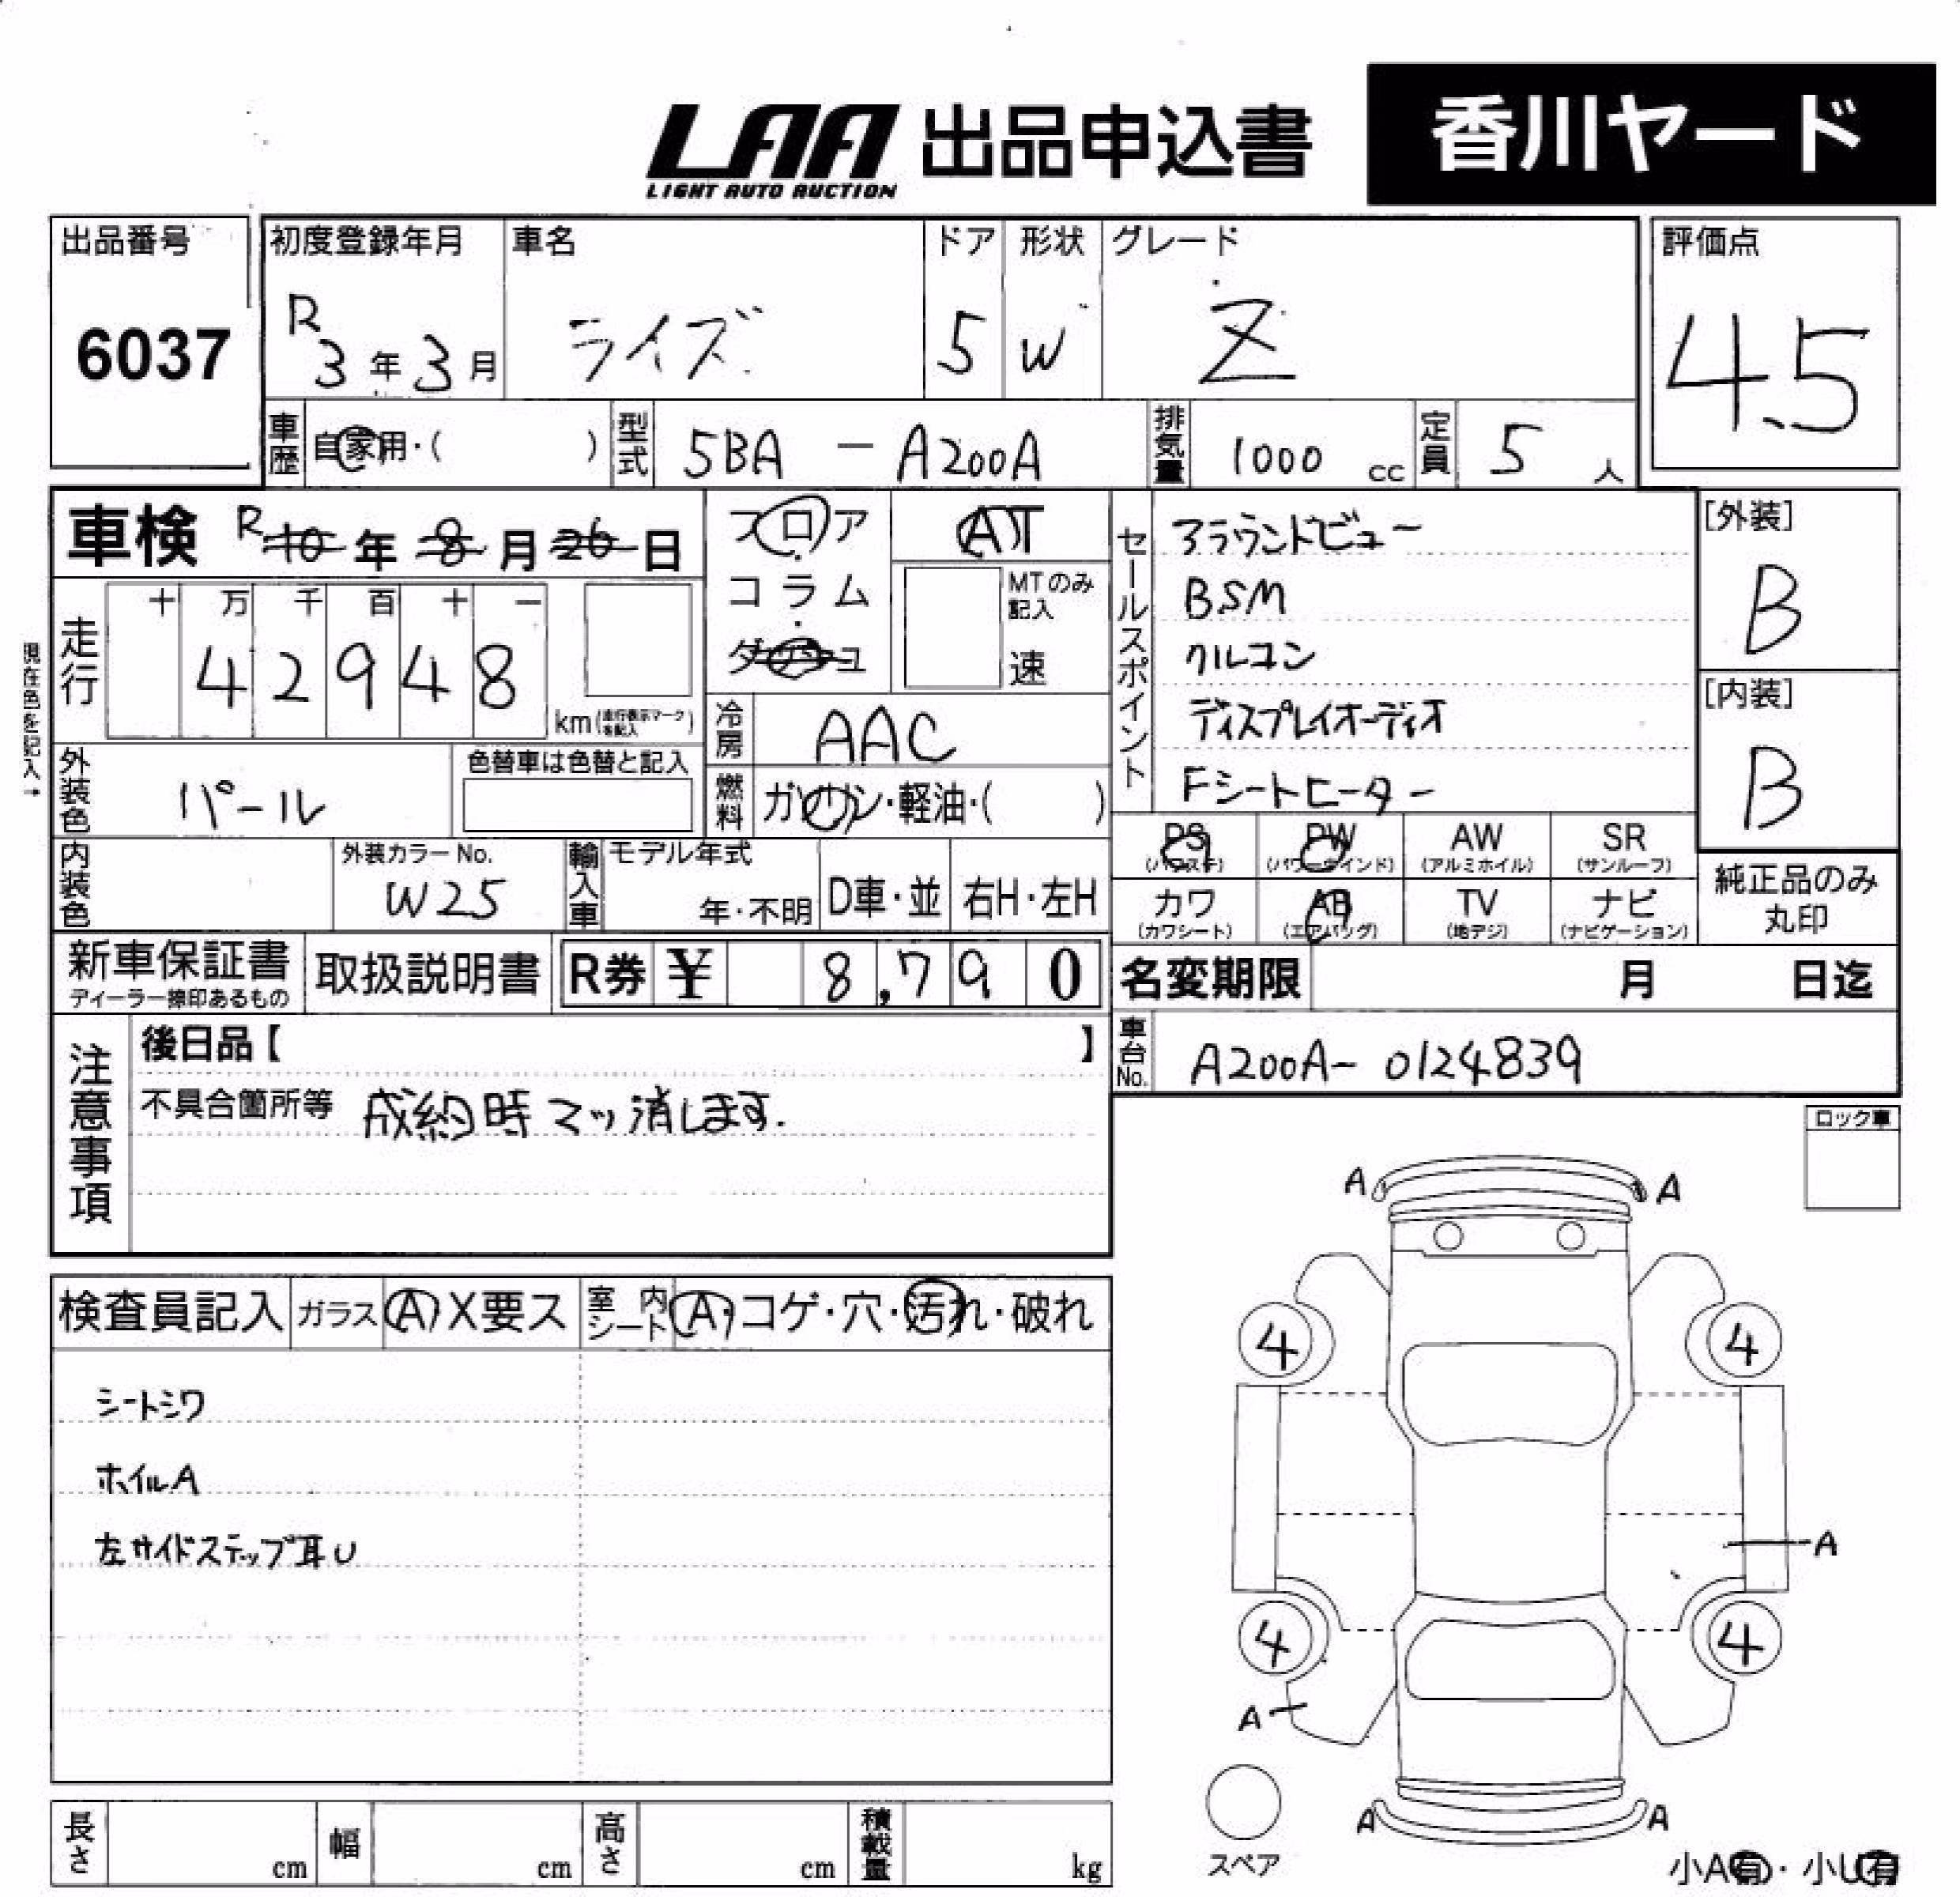 LAA 出品申込書 香川ヤード
LIGHT AUTO AUCTION
出品番号 初度登録年月 車名 ドア 形状 グレード 評価点
6037 R3年3月 ライズ 5 W Z 4.5
車歴 自家用・( ) 型式 5BA - A200A 排気量 1000 cc 定員 5 人
車検 R 10年 8月 26日 フロア AT
コラム MTのみ記入
ダッシュ 速
走行 十 万 千 百 十 一
4 2 9 4 8 km(走行表示マークを記入)
現在色を記入→
冷房 AAC
外装色 パール 色替車は色替と記入 燃料 ガソリン・軽油・( )
セールスポイント
アラウンドビュー
BSM
クルコン
ディスプレイオーディオ
Fシートヒーター
[外装]
B
[内装]
B
PS PW AW SR
(パワステ) (パワーウインド) (アルミホイル) (サンルーフ)
カワ AB TV ナビ
(カワシート) (エアバッグ) (地デジ) (ナビゲーション)
純正品のみ
丸印
内装色 外装カラーNo. W25 輸入車 モデル年式 年・不明 D車・並 右H・左H
新車保証書 取扱説明書 R券 ¥ 8,790
ディーラー捺印あるもの
名変期限 月 日迄
車台No. A200A- 0124839
注意事項
後日品【 】
不具合箇所等 成約時マッ消します.
ロック車
検査員記入 ガラス A X要ス 室内シート A・コゲ・穴・汚れ・破れ
シートシワ
ホイルA
左サイドステップ耳U
A A
4 4
A
4 4
A
A A
スペア
小A有・小U有
長さ cm 幅 cm 高さ cm 積載量 kg